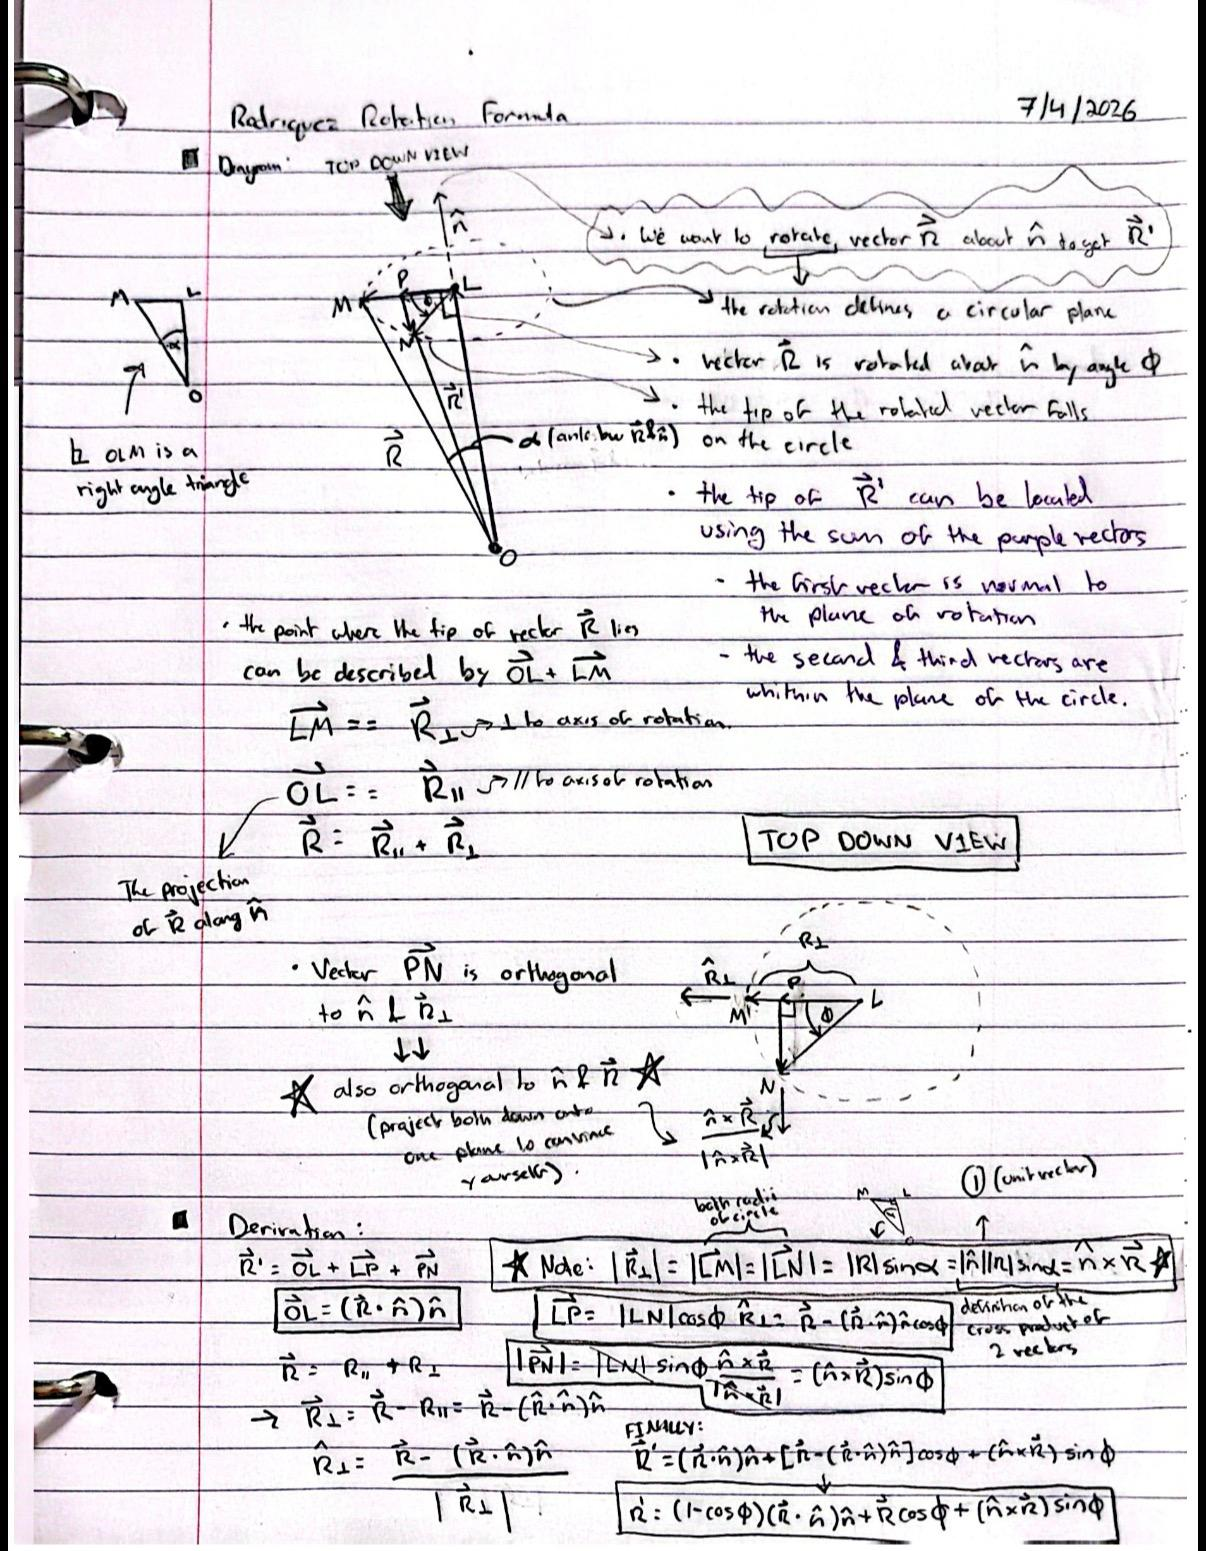 Rodriquez Rotation Formula
7/4/2026
Diagram: TOP DOWN VIEW
n̂
• We want to rotate vector R⃗ about n̂ to get R⃗'
↳ the rotation defines a circular plane
M L
α
O
P
M L
ϕ
N
R⃗'
R⃗
α (angle bw R⃗ & n̂)
O
⊾ OLM is a
right angle triangle
• vector R⃗ is rotated about n̂ by angle ϕ
• the tip of the rotated vector falls
on the circle
• the tip of R⃗' can be located
using the sum of the purple vectors
- the first vector is normal to
the plane of rotation
- the second & third vectors are
whithin the plane of the circle.
• the point where the tip of vector R⃗ lies
can be described by OL⃗ + LM⃗
LM⃗ == R⃗⊥ → ⊥ to axis of rotation.
OL⃗ == R⃗∥ → // to axis of rotation
R⃗ = R⃗∥ + R⃗⊥
The projection
of R⃗ along n̂
TOP DOWN VIEW
R⊥
R̂⊥
M' P L
ϕ
N
n̂ × R⃗ / |n̂×R⃗|
• Vector PN⃗ is orthogonal
to n̂ & R⃗⊥
↓↓
☆ also orthogonal to n̂ & R⃗ ☆
(project both down onto
one plane to convince
yourself).
Derivation:
R⃗' = OL⃗ + LP⃗ + PN⃗
OL⃗ = (R⃗ · n̂)n̂
R⃗ = R∥ + R⊥
→ R⃗⊥ = R⃗ - R∥ = R⃗ - (R⃗·n̂)n̂
R̂⊥ = R⃗ - (R⃗ · n̂)n̂ / |R⃗⊥|
both radii
of circle
M L
O
① (unit vector)
☆ Note: |R⃗⊥| = |LM⃗| = |LN⃗| = |R|sinα = |n̂||R|sinα = n̂ × R⃗ ☆
definition of the
cross product of
2 vectors
LP⃗ = |LN|cosϕ R̂⊥ = R⃗ - (R⃗·n̂)n̂cosϕ
|PN⃗| = |LN| sinϕ n̂×R⃗ / |n̂×R⃗| = (n̂×R⃗)sinϕ
FINALLY:
R⃗' = (R⃗·n̂)n̂ + [R⃗-(R⃗·n̂)n̂]cosϕ + (n̂×R⃗) sinϕ
R' = (1-cosϕ)(R⃗ · n̂)n̂ + R⃗cosϕ + (n̂×R⃗) sinϕ